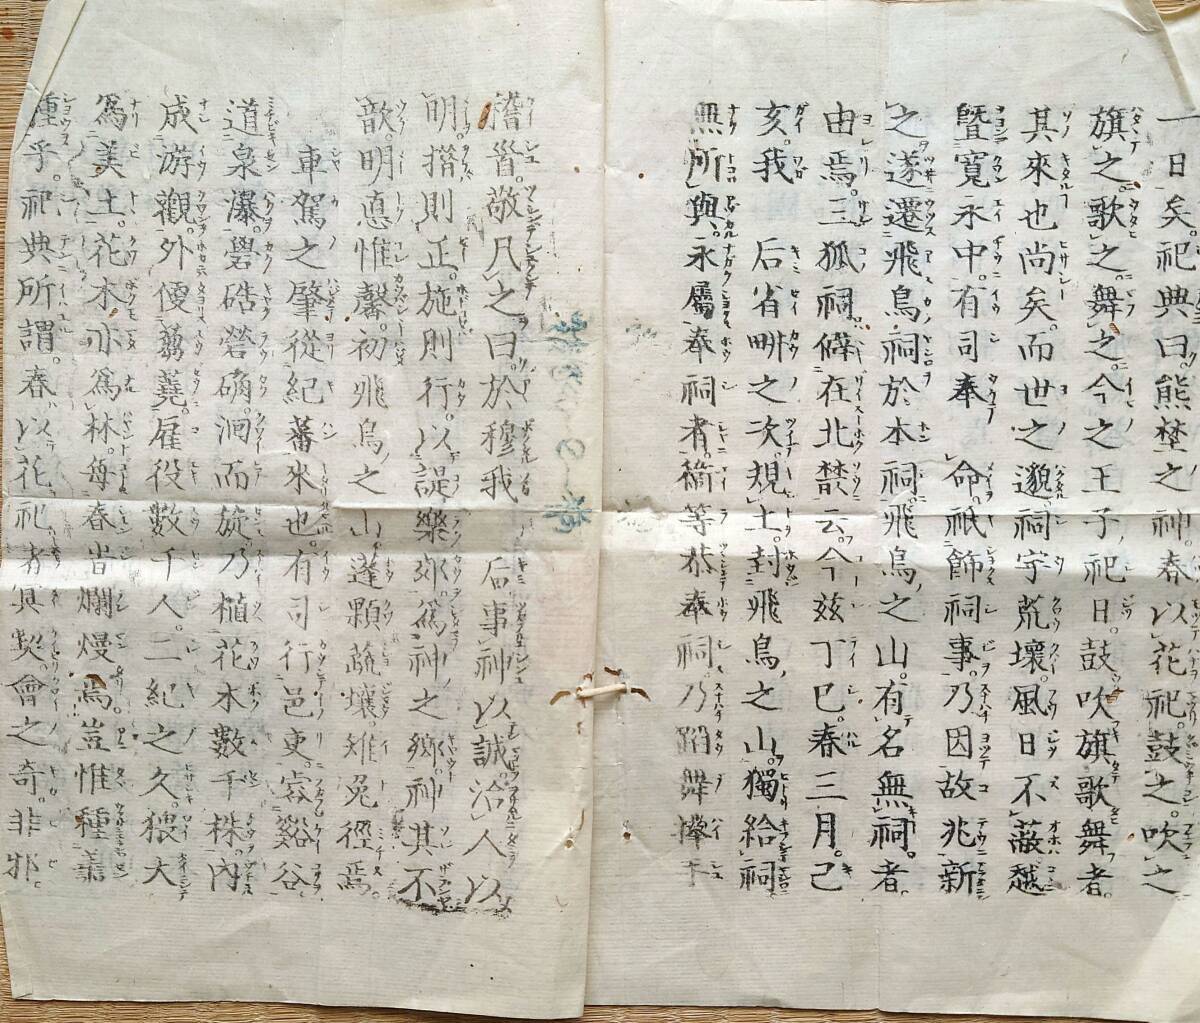 一日矣。祀典曰熊埜之神。春以花祀。鼓之。吹之
旗之。歌之。舞之。今之王子祀日。鼓吹旗歌舞者。
其來也尚矣。而世之邈。祠宇荒壞。風日不蔽。越
曁寬永中。有司奉 命。祇飾祠事。乃因故兆新
之。遂遷飛鳥祠於本祠。飛鳥之山。有名無祠。者。
由焉。三狐祠。條在北禁云。今茲丁巳。春三月。己
亥。我 后省畊之次。規土。封飛鳥之山。獨給祠
無所與。永屬奉祠者。等恭奉祠。乃蹈舞
稽首。敬凡之曰。於穆我 后。事神以誠。洽人以
明。揩則正。施則行。以諟樂 爲神之 神其不
歆。明悳惟馨。初飛鳥之山。蓬顆蔬壤。雉兔徑焉。
車駕之肇從紀蕃來也。有司行邑吏。容谿谷
道泉瀑。礐硞礐确。洄而旋。乃植花木數千株。内
成游觀。外優蒭蕘。雇役數千人。二紀之久。猥大
爲美土。花木亦爲林。每春皆爛熳焉。豈惟種
種乎。祀典所謂。春以花祀者。其契會之奇。非邪。